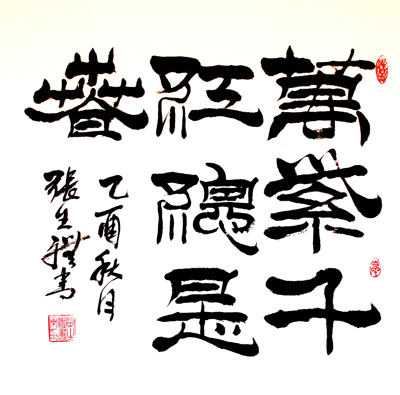 萬紫千
紅總是
春
乙酉秋月
張生書